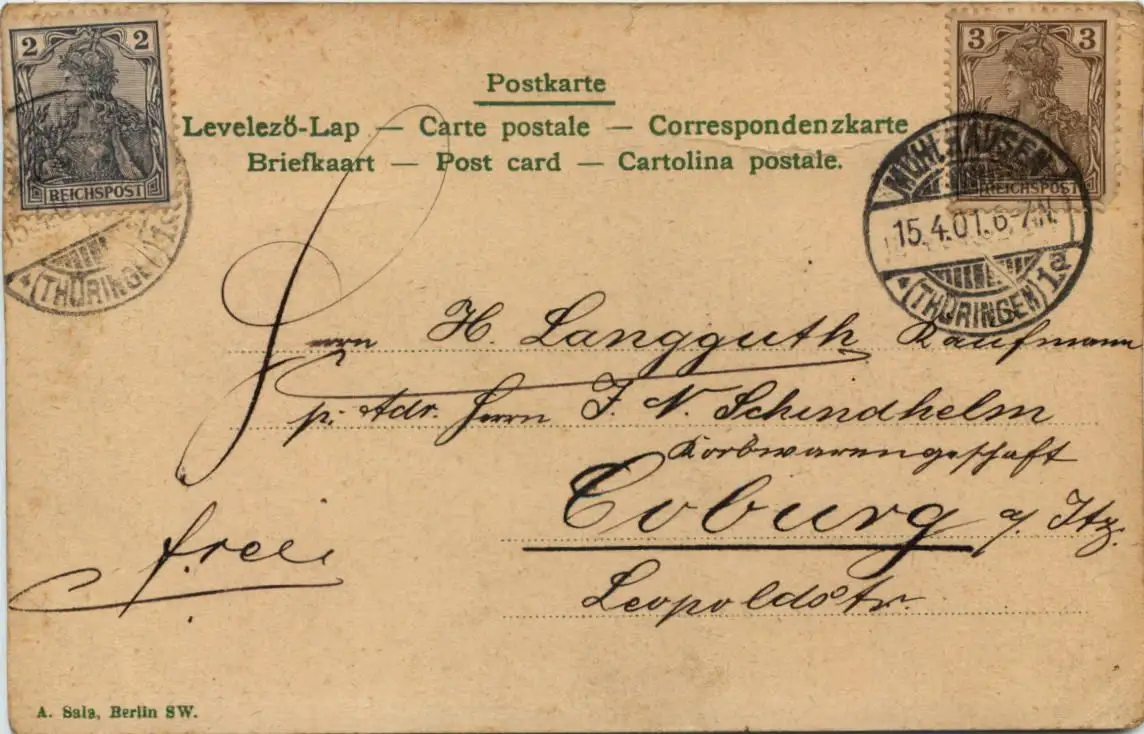 2 2
REICHSPOST
3 3
REICHSPOST
Postkarte
Levelező-Lap — Carte postale — Correspondenzkarte
Briefkaart — Post card — Cartolina postale.
MÜHLHAUSEN
15.4.01.6-7N.
*(THÜRINGEN)1a
15.4
*(THÜRINGEN)1a
Herrn H. Langguth Kaufmann
p. Adr. Herrn J. N. Schindhelm
Korbwarengeschaft
Coburg a/ Itz.
frei
Leopoldstr.
A. Sala, Berlin SW.